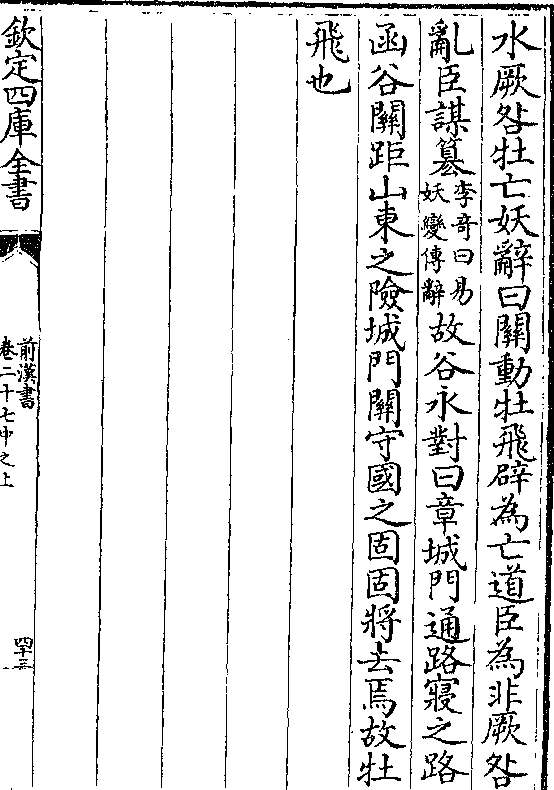 水厥咎牡亡妖辭曰關動牡飛辟為亡道臣為非厥咎
亂臣謀篡
李奇曰易
妖變傳辭
故谷永對曰章城門通路寢之路
函谷關距山東之險城門關守國之固固將去焉故牡
飛也
欽定四庫全書
前漢書
卷二十七中之上
四十五